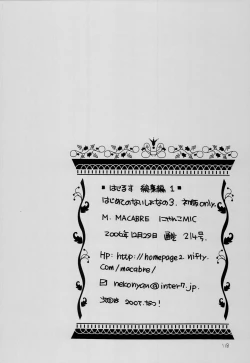 ▪ はじるす 総集編 1
はじめてのないしょなの3. only.
M. MACABRE にゃんこMIC
2006年12月29日 214号.
HP: http://homepage2.nifty.
com/macabre/
✉ nekonyan@inter7.jp.
次回は 2007. なつ!